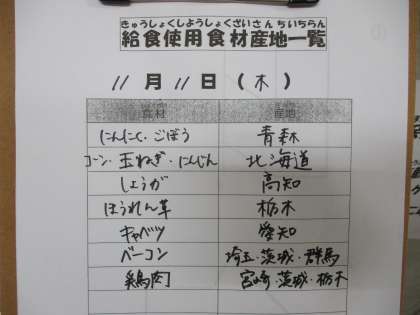 きゅうしょくしようしょくざいさんちいちらん
給食使用食材産地一覧
11月11日(木)
食材 産地
にんにく・ごぼう 青森
コーン・玉ねぎ・にんじん 北海道
しょうが 高知
ほうれん草 栃木
キャベツ 愛知
ベーコン 埼玉・茨城・群馬
鶏肉 宮崎・茨城・栃木